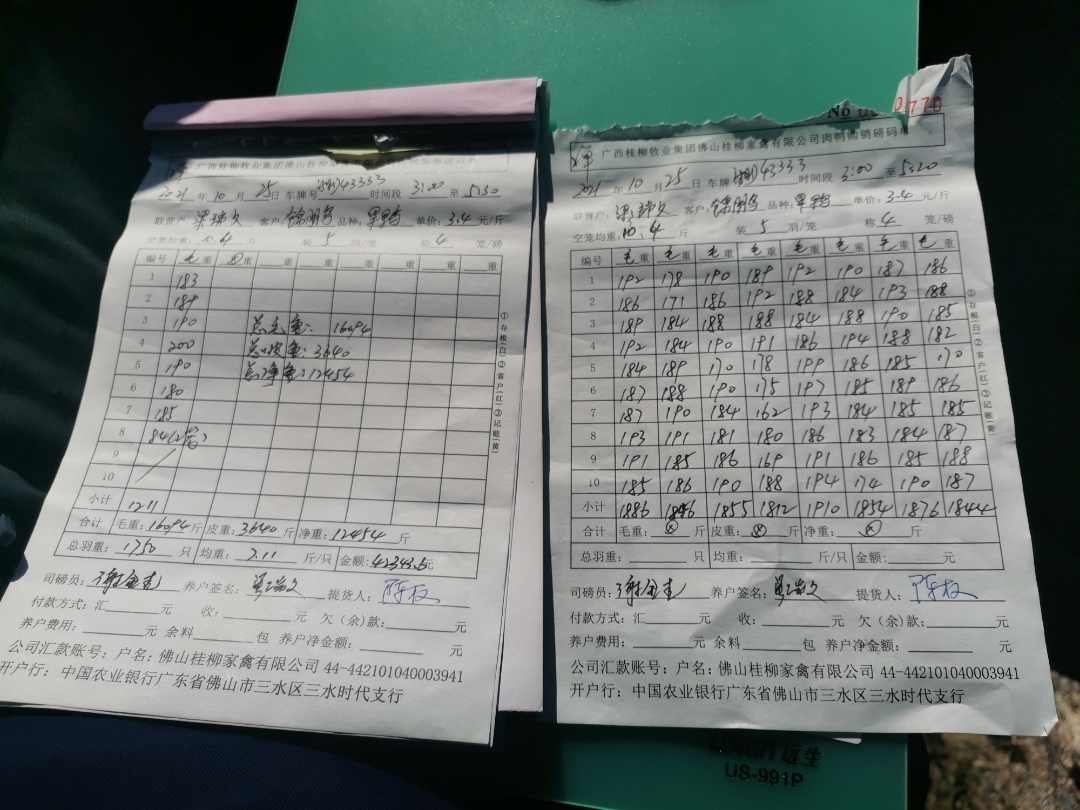 广西桂柳牧业集团佛山桂柳家禽有限公司
2021年10月25日 车牌号 43333 时间段 3:00 至 5:30
联营户: 客户: 品种: 单价: 3.4 元/斤
空笼均重: 10.4 斤 装 5 羽/笼 称 4 笼/磅
编号 毛重 重 重 重 重 重 重
1 183
2 189
3 190 总毛重: 16094
4 200 总皮重: 3640
5 190 总净重: 12454
6 180
7 185
8 84(2笼)
9
10
小计 1211
合计 毛重: 16094 斤 皮重: 3640 斤 净重: 12454 斤
总羽重: 1750 只 均重: 7.11 斤/只 金额: 42343.5元
司磅员: 养户签名: 提货人:
付款方式: 汇 元 收: 元 欠(余)款: 元
养户费用: 元 余料 包 养户净金额: 元
公司汇款账号: 户名: 佛山桂柳家禽有限公司 44-442101040003941
开户行: 中国农业银行广东省佛山市三水区三水时代支行
①存根(白)②客户(红)③记账(黄)
No 0770
广西桂柳牧业集团佛山桂柳家禽有限公司肉鸭购销磅码单
2021年10月25日 车牌 43333 时间段 3:00 至 5:20
客户: 品种: 单价: 3.4 元/斤
空笼均重: 10.4 斤 装 5 羽/笼 称 4 笼/磅
编号 毛重 毛重 毛重 毛重 毛重 毛重 毛重 毛重
1 192 178 190 189 192 190 187 186
2 186 171 186 192 188 184 193 188
3 189 184 188 188 184 188 190 185
4 192 184 190 191 186 194 188 182
5 184 189 170 178 199 186 185 170
6 187 188 190 175 197 185 189 186
7 187 190 184 162 193 184 185 185
8 193 191 181 180 186 183 184 187
9 191 185 186 169 191 186 185 188
10 185 186 190 188 194 174 190 187
小计 1886 1846 1855 1812 1910 1854 1876 1844
合计 毛重: 斤 皮重: 斤 净重: 斤
总羽重: 只 均重: 斤/只 金额: 元
司磅员: 养户签名: 提货人:
付款方式: 汇 元 收: 元 欠(余)款: 元
养户费用: 元 余料 包 养户净金额: 元
公司汇款账号: 户名: 佛山桂柳家禽有限公司 44-442101040003941
开户行: 中国农业银行广东省佛山市三水区三水时代支行
①存根(白)②客户(红)③记账(黄)
USIGN 远生
US-991P